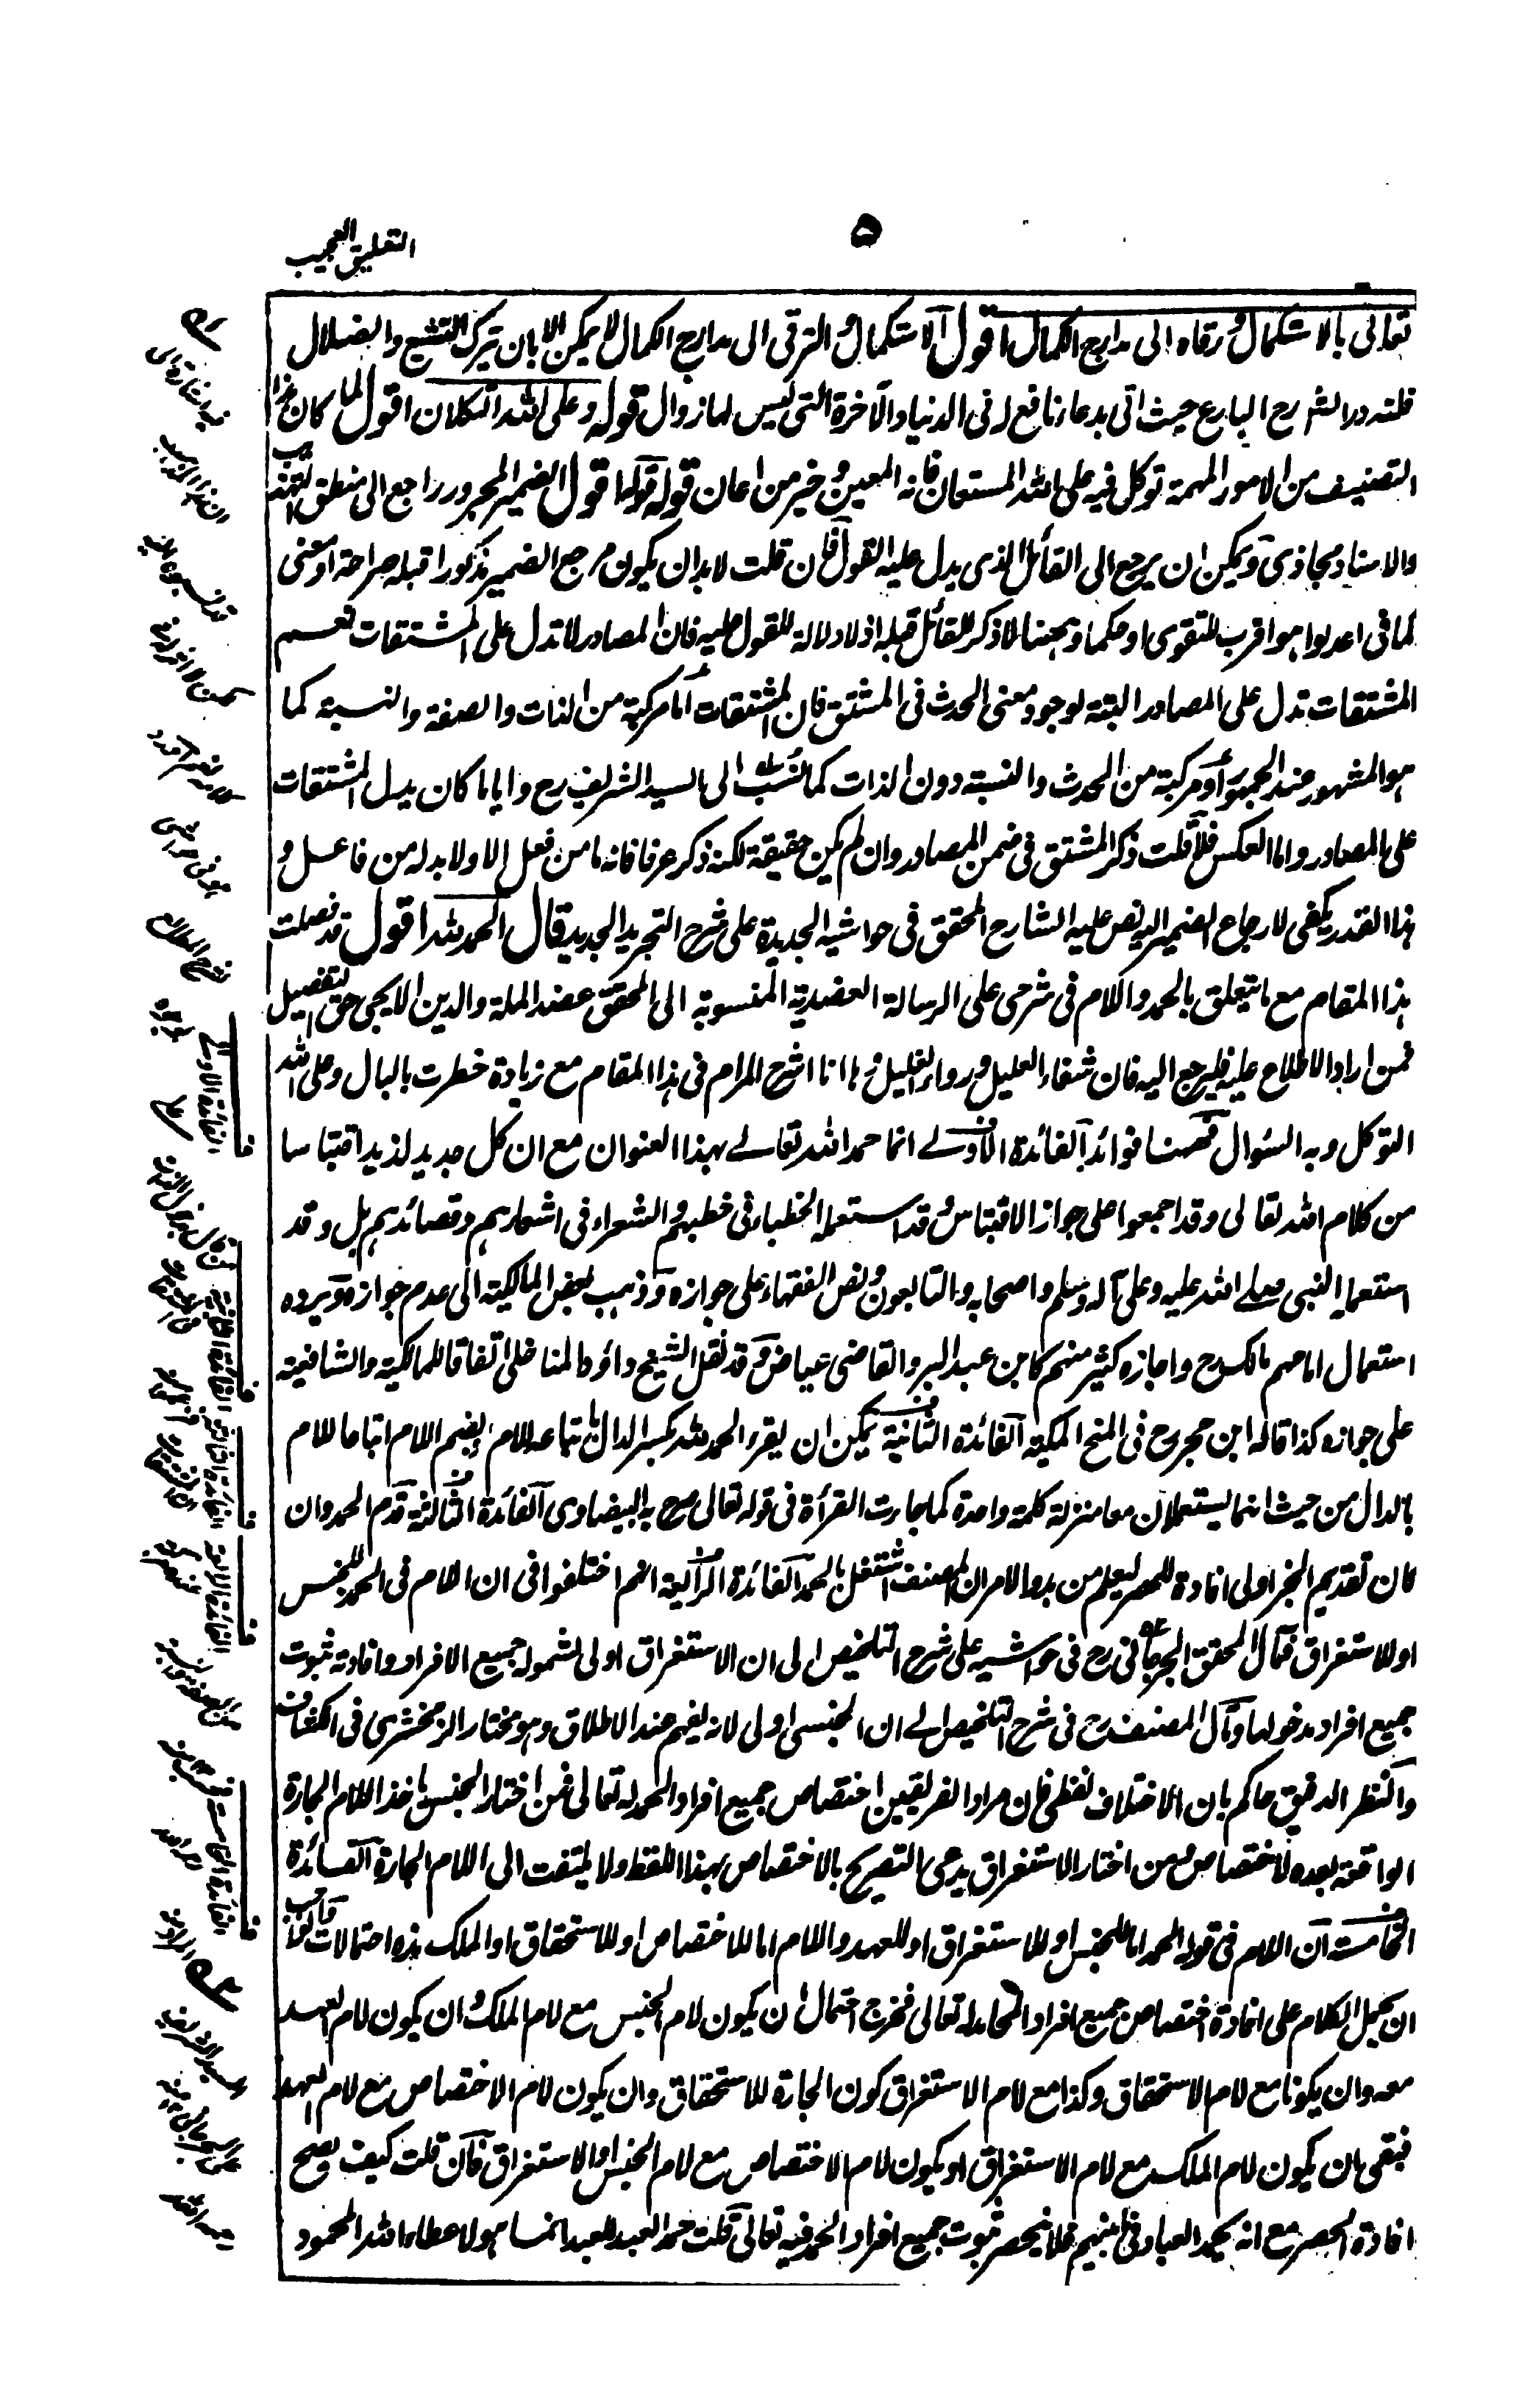 التعليق العجيب
٥
تعالى بالاستكمال ورقاه الى مدارج الكمال اقول الاستكمال والترقى الى مدارج الكمال لا يمكن الا بان يترك التشيع والضلال
فلله در الشارح البارع حيث اتى بدعاء نافع له فى الدنيا والآخرة التى ليس لها زوال قوله وعلى الله التكلان اقول لما كان هذا
التصنيف من الامور المهمة توكل فيه على الله المستعان فانه المعين وخير من اعان قوله قولها اقول الضمير المجرور راجع الى منطق التهذيب
والاسناد مجازى ويمكن ان يرجع الى القائل الذى يدل عليه القول فان قلت لا بد ان يكون مرجع الضمير مذكورا قبله صراحة او معنى
كما فى اعدلوا هو اقرب للتقوى او حكما وههنا لا ذكر للقائل قبله اذ لا دلالة للقول عليه فان المصادر لا تدل على المشتقات نعم
المشتقات تدل على المصادر البتة لوجود معنى الحدث فى المشتق فان المشتقات اما مركبة من الذات والصفة والنسبة كما
هو المشهور عند الجمهور او مركبة من الحدث والنسبة دون الذات كما نسب الى السيد الشريف رح وايا ما كان يدل المشتقات
على المصادر واما العكس فلا قلت ذكر المشتق فى ضمن المصادر وان لم يكن حقيقة لكنه ذكر عرفا فانه ما من فعل الا ولا بد له من فاعل و
هذا القدر يكفى لارجاع الضمير اليه نص عليه الشارح المحقق فى حواشيه الجديدة على شرح التجريد الجديد قال الحمد لله اقول قد فصلت
هذا المقام مع ما يتعلق بالحمد واللام فى شرحى على الرسالة العضدية المنسوبة الى المحقق عضد الملة والدين الايجى حق التفصيل
فمن اراد الاطلاع عليه فليرجع اليه فان شفاء العليل ورواء الغليل وها انا اشرح المرام فى هذا المقام مع زيادة خطرت بالبال وعلى الله
التوكل وبه السؤال فههنا فوائد الفائدة الاولى انما حمد الله تعالى بهذا العنوان مع ان كل جديد لذيذ اقتباسا
من كلام الله تعالى وقد اجمعوا على جواز الاقتباس وقد استعمله الخطباء فى خطبهم والشعراء فى اشعارهم وقصائدهم بل وقد
استعمله النبى صلى الله عليه وعلى آله وسلم واصحابه والتابعون ونص الفقهاء على جوازه وذهب بعض المالكية الى عدم جوازه ويرده
استعمال امامهم مالك رح واجازه كثير منهم كابن عبد البر والقاضى عياض وقد نقل الشيخ داؤد المناخلى اتفاقا للمالكية والشافعية
على جوازه كذا قاله ابن حجر رح فى المنح المكية الفائدة الثانية يمكن ان يقرء الحمد لله بكسر الدال باتباعه اللام وبضم اللام اتباعا للام
بالدال من حيث انهما يستعملان معا منزلة كلمة واحدة كما جاءت القرأة فى قوله تعالى صرح به البيضاوى الفائدة الثالثة قدم الحمد وان
كان تقديم الخبر اولى افادة للحصر ليعلم من بدو الامر ان المصنف اشتغل بالحمد الفائدة الرابعة انهم اختلفوا فى ان اللام فى الحمد للجنس
او للاستغراق فمال المحقق الجرجانى رح فى حواشيه على شرح التلخيص الى ان الاستغراق اولى لشموله جميع الافراد وافادته ثبوت
جميع افراد مدخولها ومال المصنف رح فى شرح التلخيص الى ان الجنسى اولى لانه يفهم عند الاطلاق وهو مختار الزمخشرى فى الكشاف
والنظر الدقيق حاكم بان الاختلاف لفظى فان مراد الفريقين اختصاص جميع افراد الحمد له تعالى فمن اختار الجنس ياخذ اللام الجارة
الواقعة بعده لاختصاص ومن اختار الاستغراق يدعى التصريح بالاختصاص بهذا اللفظ ولا يلتفت الى اللام الجارة الفائدة
الخامسة ان اللام فى قوله الحمد اما للجنس او للاستغراق او للعهد واللام اما للاختصاص او للاستحقاق او الملك هذه احتمالات فالواجب
ان يحمل الكلام على افادة اختصاص جميع افراد المحامد له تعالى فخرج احتمال ان يكون لام الجنس مع لام الملك وان يكون لام العهد
معه وان يكونا مع لام الاستحقاق وكذا مع لام الاستغراق كون الجارة للاستحقاق وان يكون لام الاختصاص مع لام العهد
فبقى ان يكون لام الملك مع لام الاستغراق او يكون لام الاختصاص مع لام الجنس او الاستغراق فان قلت كيف يصح
افادة الحصر مع انه يحمد العباد فى بينهم فلا ينحصر ثبوت جميع افراد الحمد فيه تعالى قلت حمد العبد للعبد انما هو لاعطاء الله المحمود
الفائدة الاولى
الفائدة الثانية
الفائدة الثالثة
الفائدة الرابعة
الفائدة الخامسة